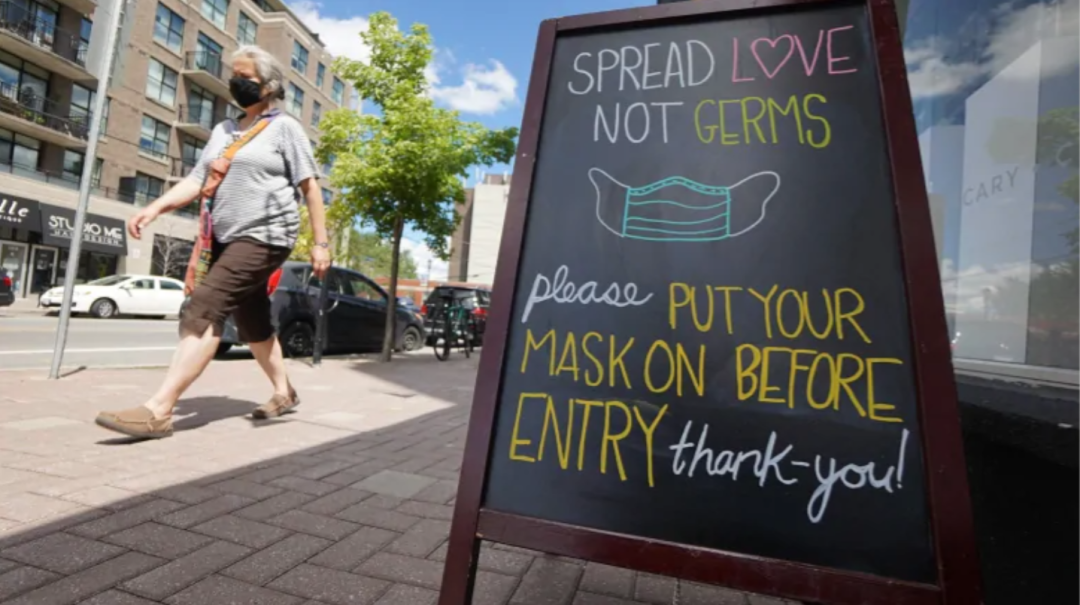 SPREAD LOVE
NOT GERMS
please PUT YOUR
MASK ON BEFORE
ENTRY thank-you!
STUDIO ME
CARY